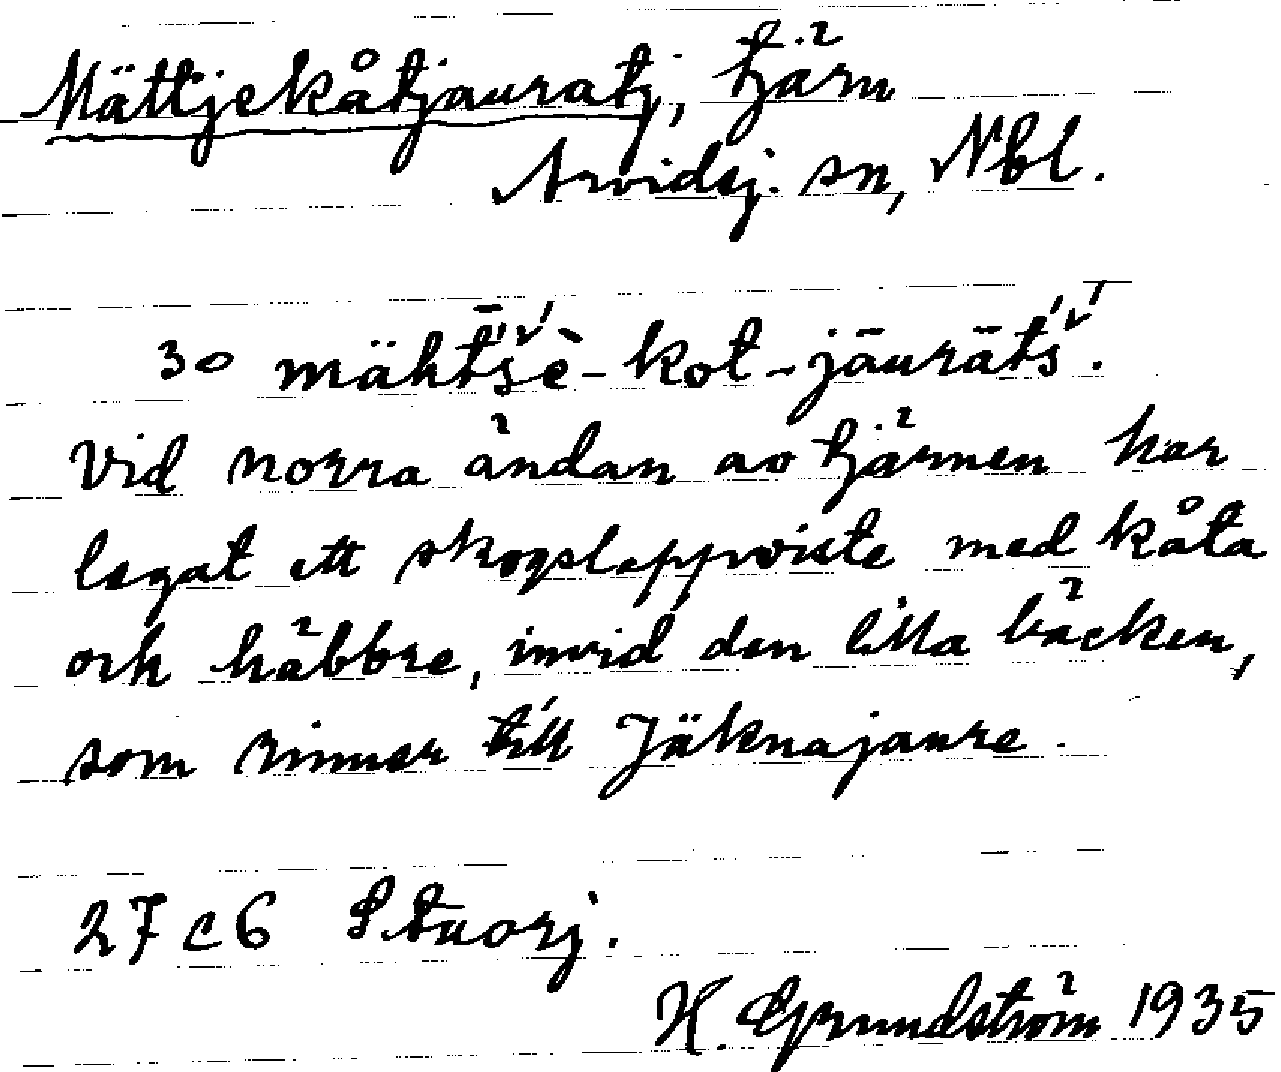 Mättjekåtjauratj, tjärn
Arvidsj. sn, Nbl.
30 mäht̄'s̀̌è-kot-jāurāt́š́.
Vid norra ändan av tjärnen har
legat ett skogslappviste med kåta
och häbbre, invid den lilla bäcken,
som rinner till Jäknajaure.
27 c 6 Stuorj.
H. Grundström 1935